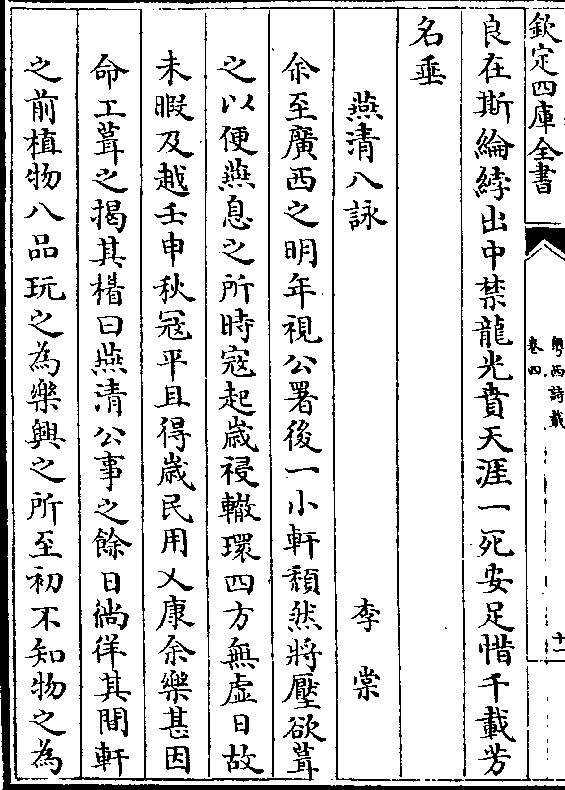 欽定四庫全書
粤西詩載
卷四
十一
良在斯綸綍出中禁龍光賁天涯一死安足惜千載芳
名垂
燕清八詠 李棠
余至廣西之明年視公署後一小軒頹然將壓欲葺
之以便燕息之所時寇起歲祲轍環四方無虛日故
未暇及越壬申秋冦平且得歲民用乂康余樂甚因
命工葺之揭其楣曰燕清公事之餘日徜徉其間軒
之前植物八品玩之為樂興之所至初不知物之為